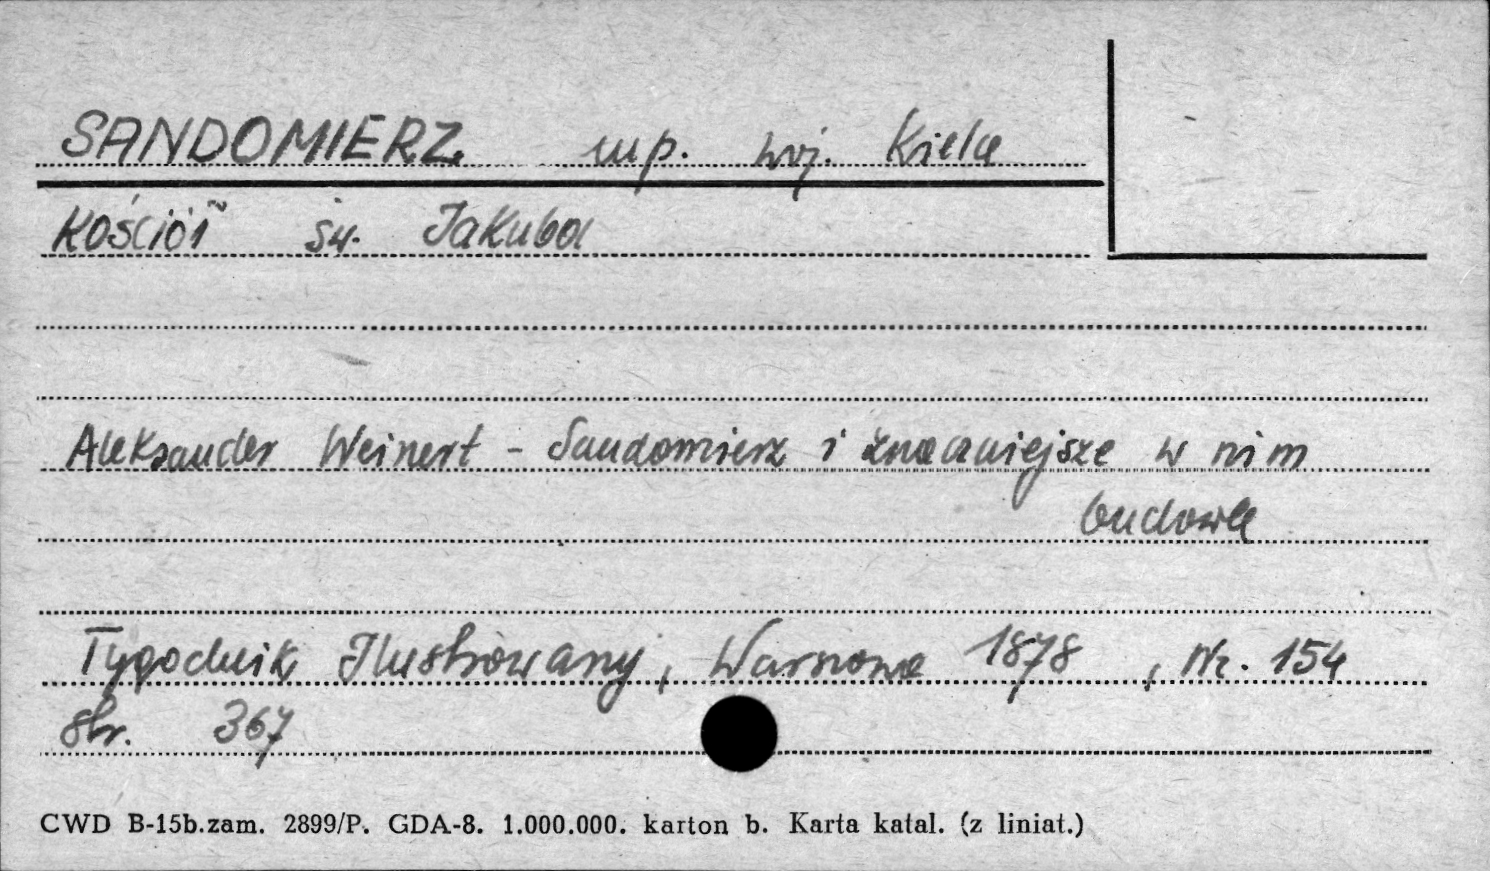 SANDOMIERZ mp. woj. Kielce
Kościół św. Jakuba
Aleksander Weinert - Sandomierz i znaczniejsze w nim
budowle
Tygodnik Ilustrowany, Warszawa 1878, Nr. 154
str. 367
CWD B-15b.zam. 2899/P. GDA-8. 1.000.000. karton b. Karta katal. (z liniat.)